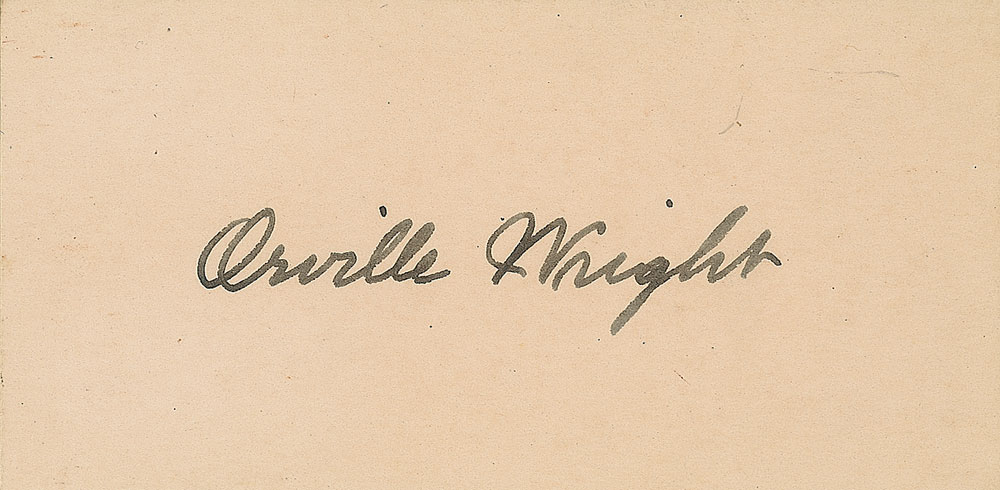 Orville Wright